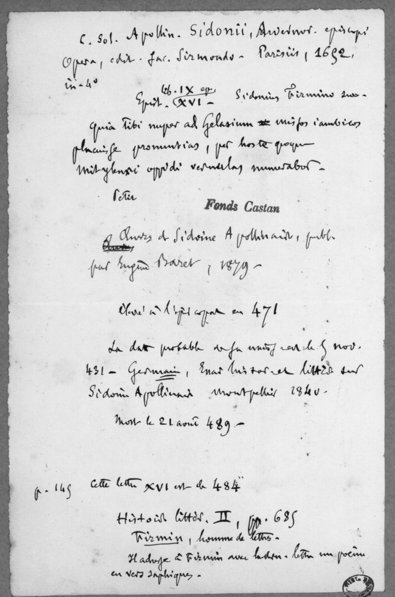 C. Sol. Apollin. Sidonii, Arvernor. episcopi
Opera, edit. Jac. Sirmondo. Parisiis, 1652,
in-4°
lib. IX ep.
Epist. XVI - Sidonius Firmino suo -
quia tibi nuper ad Gelasium missos iambicos
placuisse pronuntias, per hos te quoque
Mitylenæi oppidi vernulas numerabor -
Fonds Castan
Œuvres de Sidoine Apollinaire, publ.
par Eugène Baret, 1879 -
Élevé à l'épiscopat en 471
La date probable de sa naiss. est le 5 nov.
431 - Germain, Essai histor. et littér. sur
Sidoine Apollinaire Montpellier 1840.
Mort le 21 août 489 -
p. 145 Cette lettre XVI est de 484
Histoire littér. II, pp. 685
Firmin, homme de lettres -
Il adresse à Firmin avec la dern. lettre un poème
en vers saphiques -